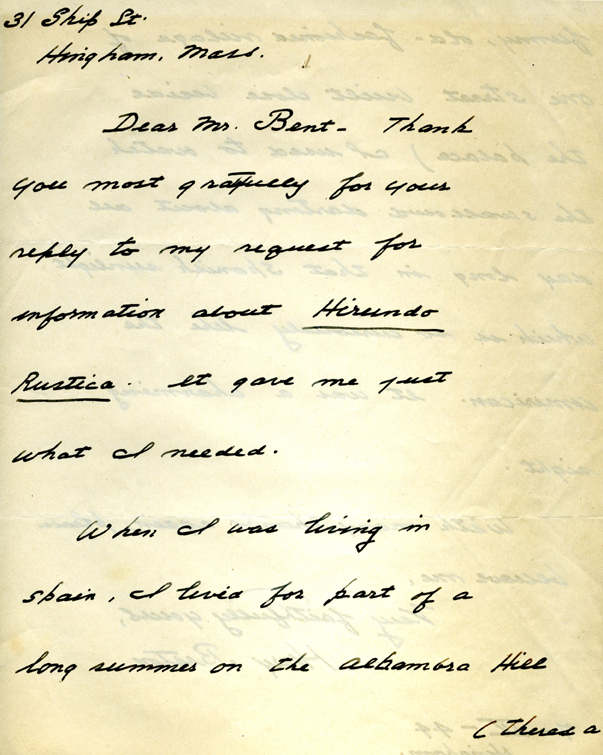 31 Ship St.
Hingham, Mass.
Dear Mr. Bent- Thank
you most gratefully for your
reply to my request for
information about Hirundo
Rustica. It gave me just
what I needed.
When I was living in
Spain, I lived for part of a
long summer on the Alhambra Hill
(theres a